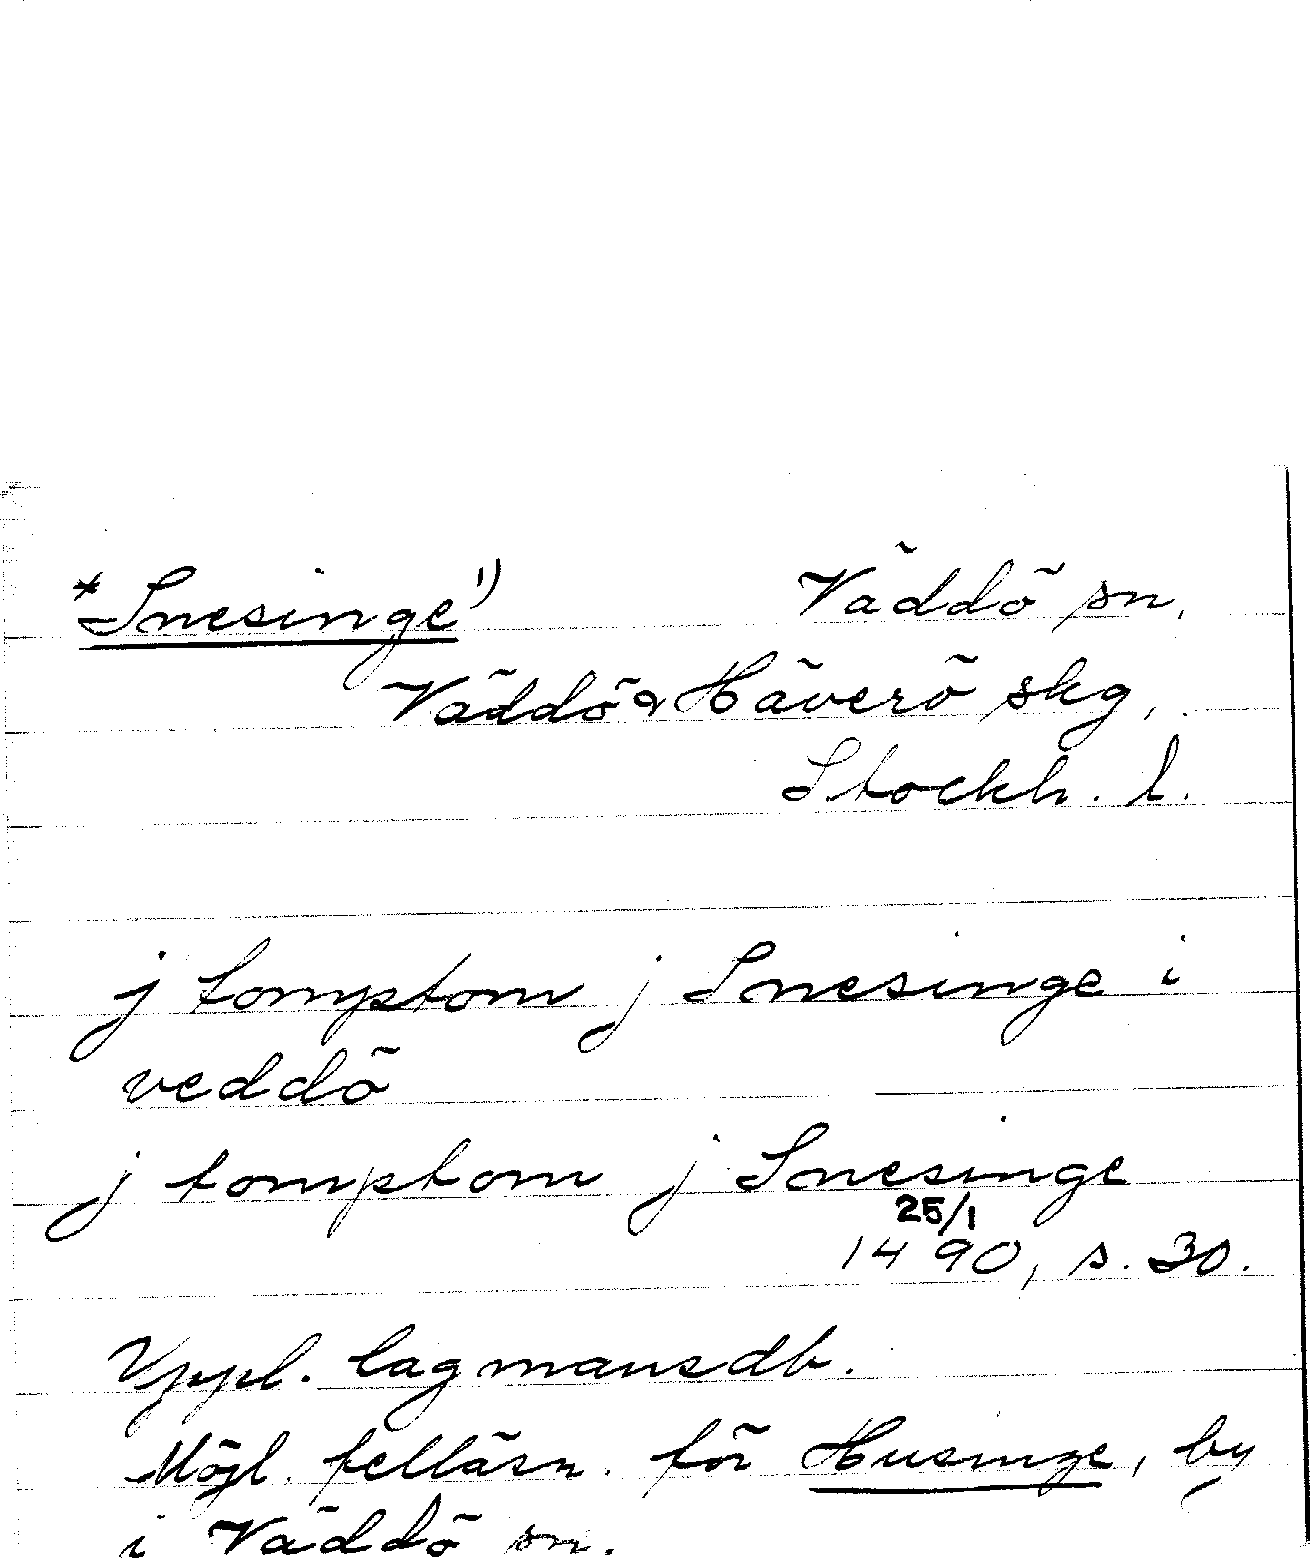 *Snesinge 1) Väddö sn.
Väddö & Häverö skg,
Stockh. l.
j tomptom j Snesinge i
veddö
j tomptom j Snesinge
25/1
1490, s. 30.
Uppl. lagmansdb.
Möjl. felläsn. för Husinge, by
i Väddö sn.